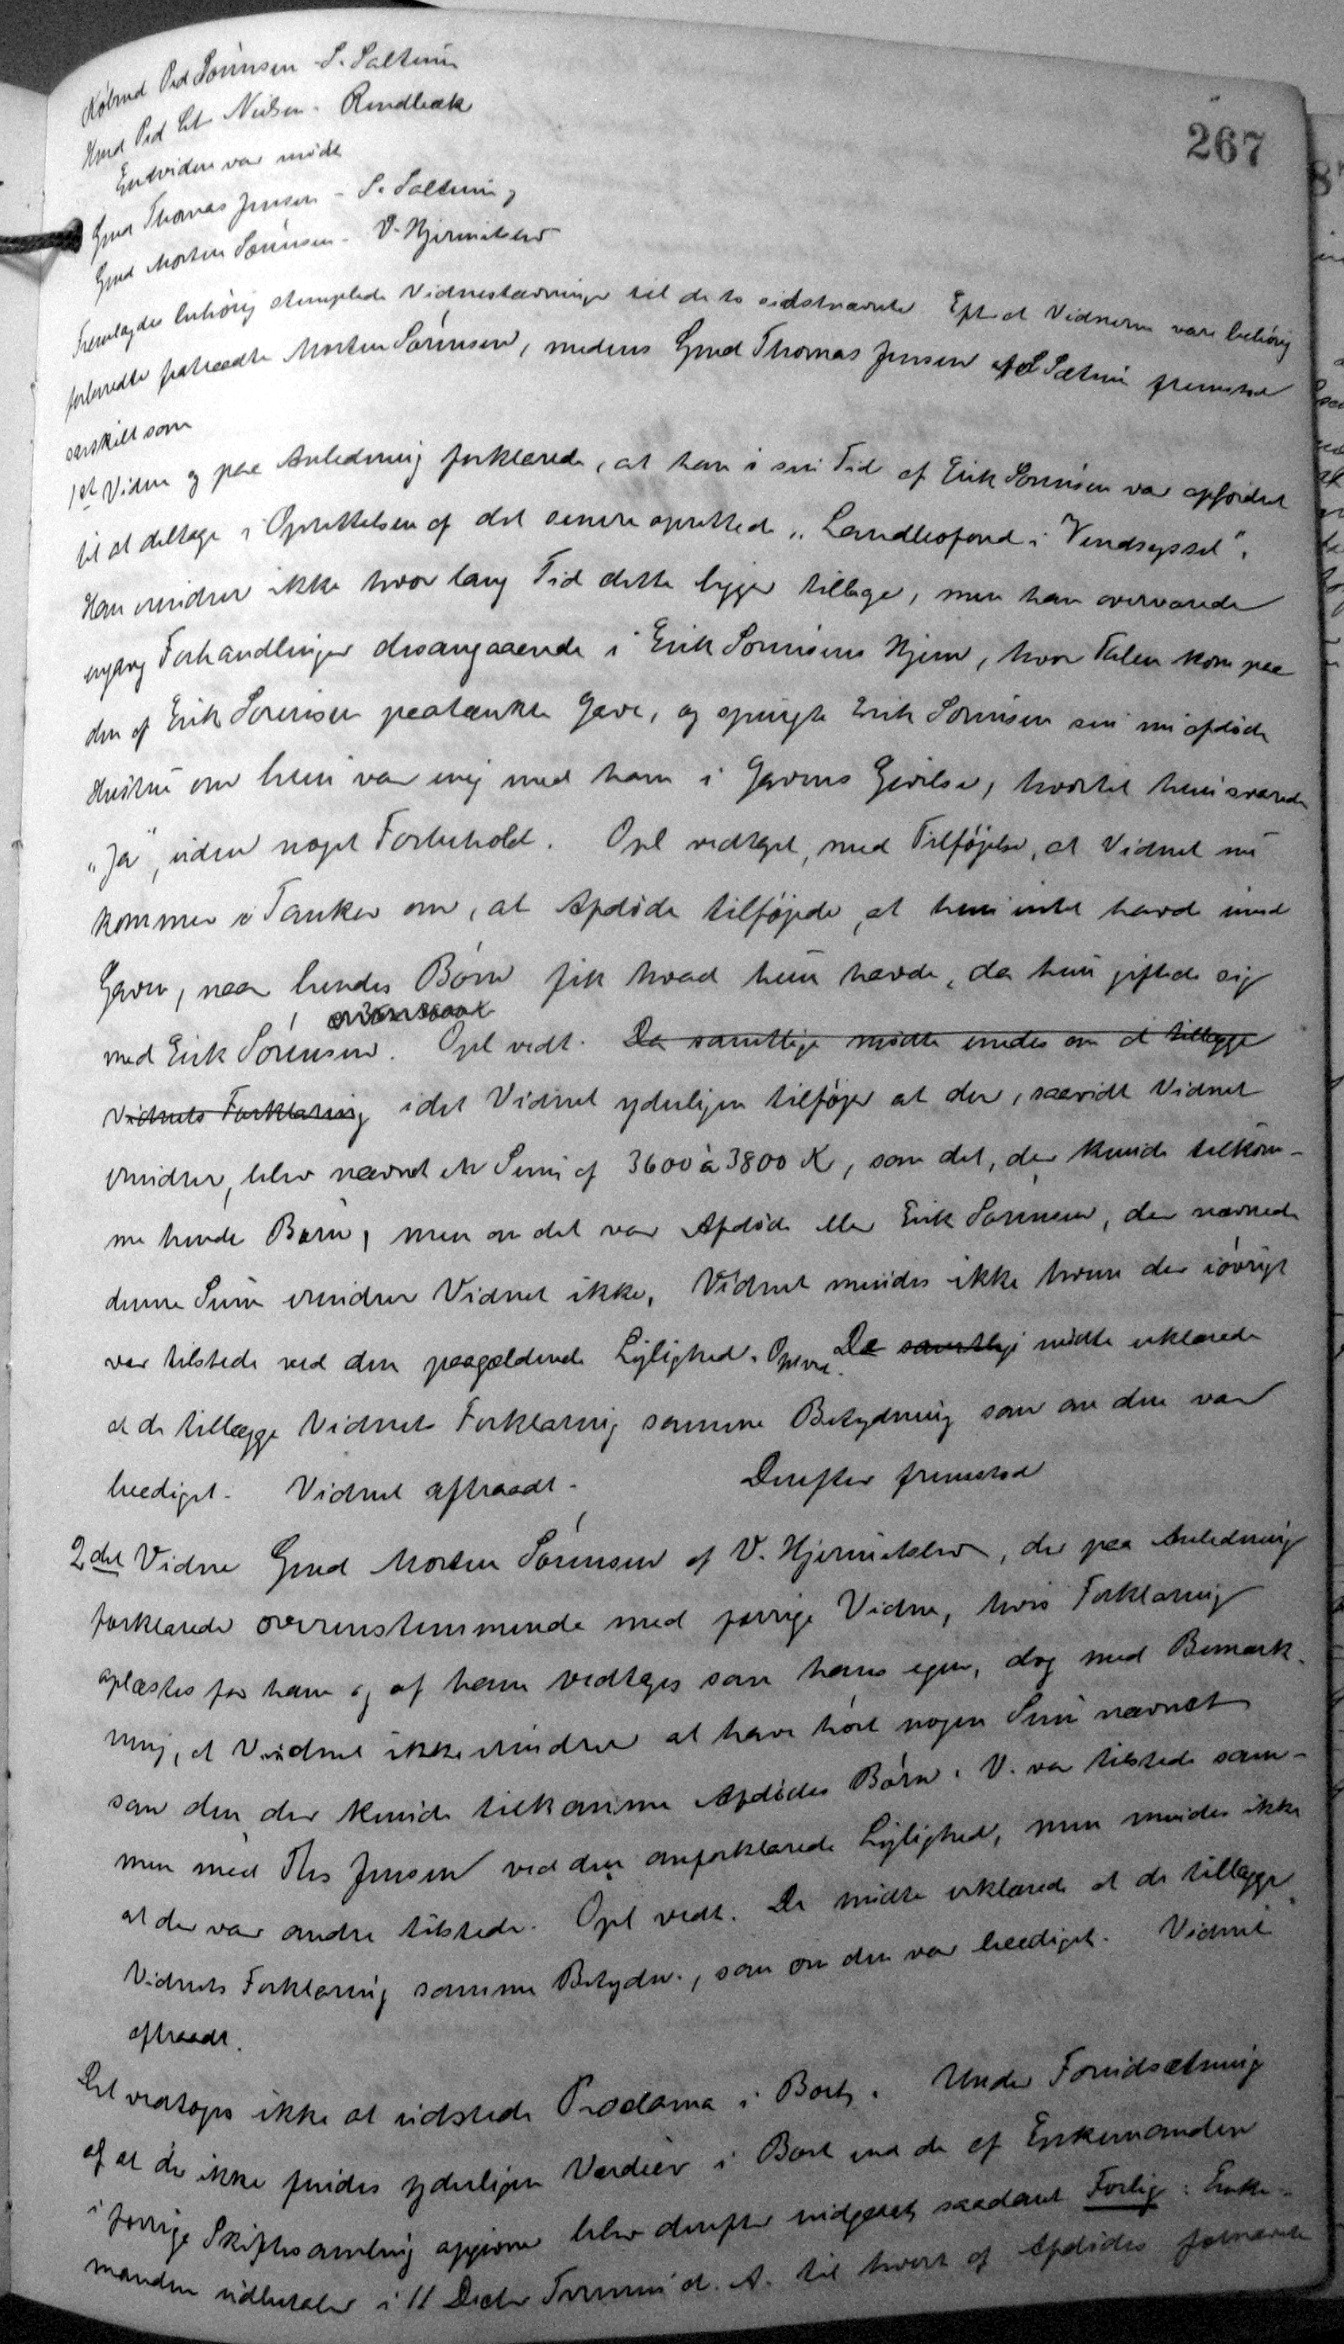 267
Købmd Ped Sørensen - S. Saltum
Gmd Ped Chr Nielsen - Rendbæk
Endvidere var mødt
Gmd Thomas Jensen - S. Saltum
Gmd Morten Sørensen - V. Hjermitslev
Fremlagdes behørig stemplede Vidnestævninger til de to sidstnævnte Efter at Vidnerne vare behørig
forberedte fratraadte Morten Sørensen, medens Gmd Thomas Jensen af S Saltum fremstod
særskilt som
1st Vidne og paa Anledning forklarede, at han i sin Tid af Erik Sørensen var opfordret
til at deltage i Oprettelsen af det senere oprettede „Landbofond i Vendsyssel“.
Han erindrer ikke hvor lang Tid dette ligger tilbage, men han overværede
engang Forhandlinger desangaaende i Erik Sørensens Hjem, hvor Talen kom paa
den af Erik Sørensen paatænkte Gave, og spurgte Erik Sørensen sin nu afdøde
Hustru om hun var enig med ham i Gavens Givelse, hvortil hun svarede
„Ja“, uden noget Forbehold. Opl vedtaget, med Tilføjelse, at Vidnet nu
kommer i Tanker om, at Afdøde tilføjede, at hun intet havde imod
Gaven, naar hendes Børn fik hvad hun havde, da hun giftede sig
med Erik Sørensen. Opl vedt. De samtlige mødte enedes om at tillægge
Vidnets Forklaring idet Vidnet yderligere tilføjer at der, saavidt Vidnet
erindrer, blev nævnet en Sum af 3600 à 3800 K, som det, der kunde tilkom-
me hendes Børn, men om det var Afdøde eller Erik Sørensen, der nævnede
denne Sum erindrer Vidnet ikke. Vidnet mindes ikke hvem der iøvrigt
var tilstede ved den paagældende Lejlighed. Opl ved. De samtlige mødte erklærede
at de tillægge Vidnets Forklaring samme Betydning som om den var
beediget. Vidnet aftraadt. Derefter fremstod
2det Vidne Gmd Morten Sørensen af V. Hjermitslev, der paa Anledning
forklarede overensstemmende med forrige Vidne, hvis Forklaring
oplæstes for ham og af ham vedtoges som hans egen, dog med Bemærk-
ning, at Vidnet ikke erindrer at have hørt nogen Sum nævnet
som den der kunde tilkomme Afdødes Børn. V. var tilstede sam-
men med Ths Jensen ved den omforklarede Lejlighed, men mindes ikke
at der var andre tilstede. Opl vedt. De mødte erklærede at de tillægge
Vidnets Forklaring samme Betydn., som om den var beediget. Vidnet
aftraadt.
Det vedtoges ikke at udstede Proclama i Boet. Under Forudsætning
af at der ikke findes yderligere Værdier i Boet end de af Enkemanden
i forrige Skiftesamling opgivne blev derefter indgaaet saadant Forlig: Enke-
manden udbetaler i 11 Decbr Termin d. A. til hvert af Afdødes fornævnte